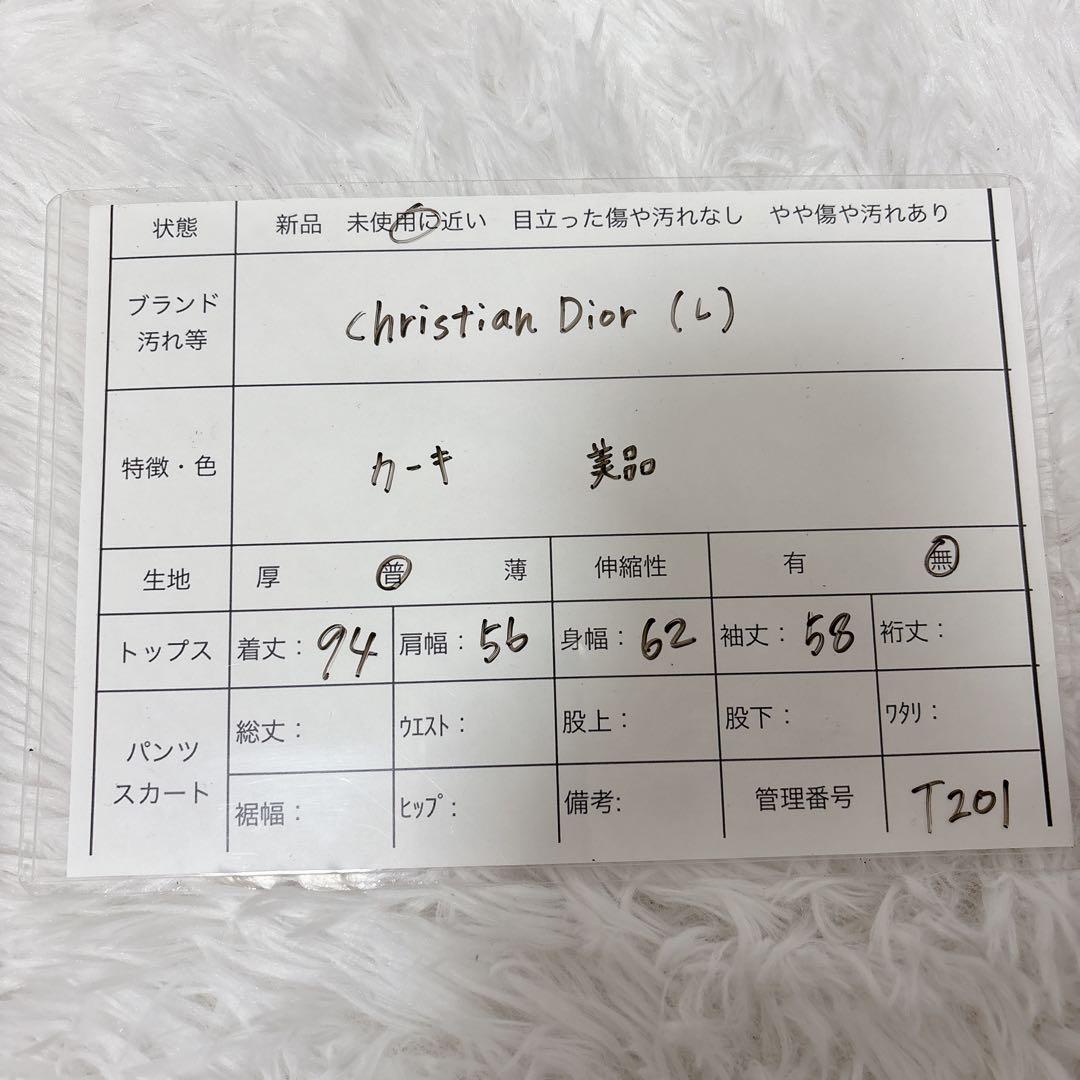 状態 新品 未使用に近い 目立った傷や汚れなし やや傷や汚れあり
ブランド
汚れ等
Christian Dior (L)
特徴・色 カーキ 美品
生地 厚 普 薄 伸縮性 有 無
トップス 着丈：94 肩幅：56 身幅：62 袖丈：58 裄丈：
パンツ
スカート
総丈： ｳｴｽﾄ： 股上： 股下： ﾜﾀﾘ：
裾幅： ﾋｯﾌﾟ： 備考: 管理番号 T201